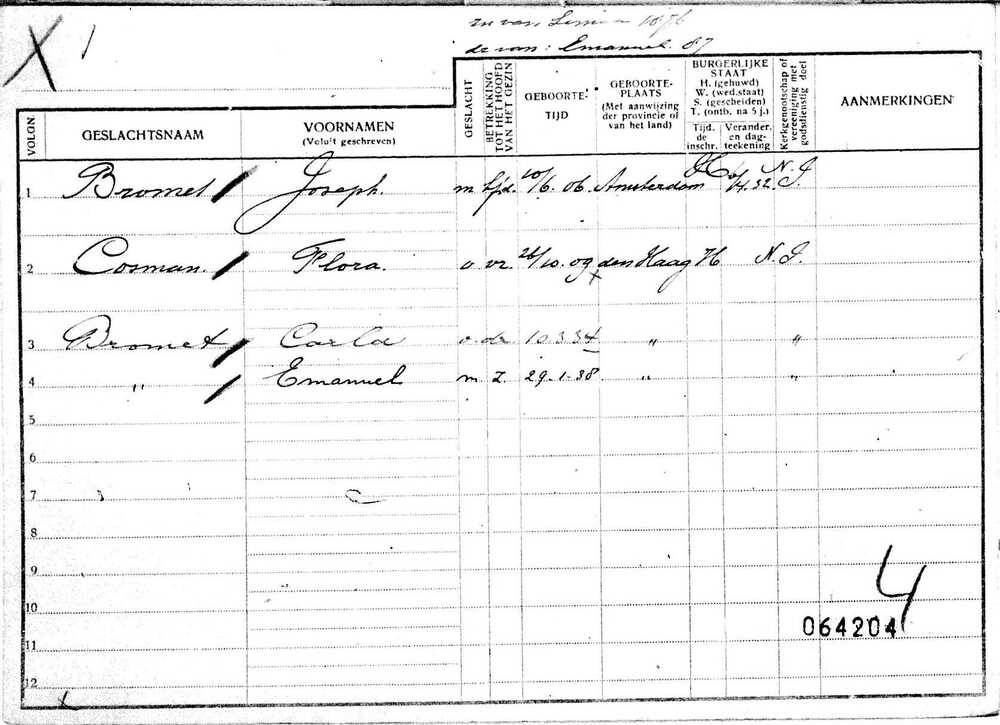 X 1
zn van: 1876
de van: Emanuel. 87
VOLGN. GESLACHTSNAAM VOORNAMEN (Voluit geschreven) GESLACHT BETREKKING TOT HET HOOFD VAN HET GEZIN GEBOORTE- TIJD GEBOORTE- PLAATS (Met aanwijzing der provincie of van het land) BURGERLIJKE STAAT H. (gehuwd) W. (wed.staat) S. (gescheiden) T. (ontb. na 5 j.) Tijd. de inschr. Verander. en dag- teekening Kerkgenootschap of vereeniging met godsdienstig doel AANMERKINGEN
1 Bromet Joseph. m hfd. 10/6. 06. Amsterdam H 6/4.32. N.I.
2 Cosman. Flora. v. vr. 26/10. 09 den Haag H N.I.
3 Bromet Carla v. dr. 10 3 34 " "
4 " Emanuel m z. 29.1.38. " "
5
6
7
8
9
10
11
12
4
064204